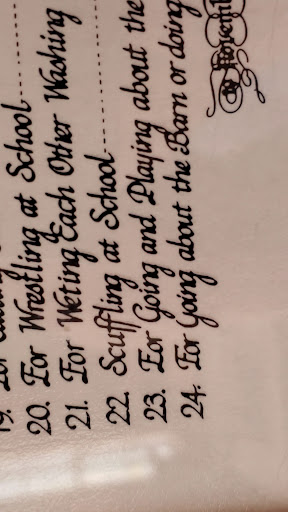 19. For
20. For Wrestling at School
21. For Weting Each Other Washing
22. Scuffling at School
23. For Going and Playing about the
24. For Going about the Barn or doing